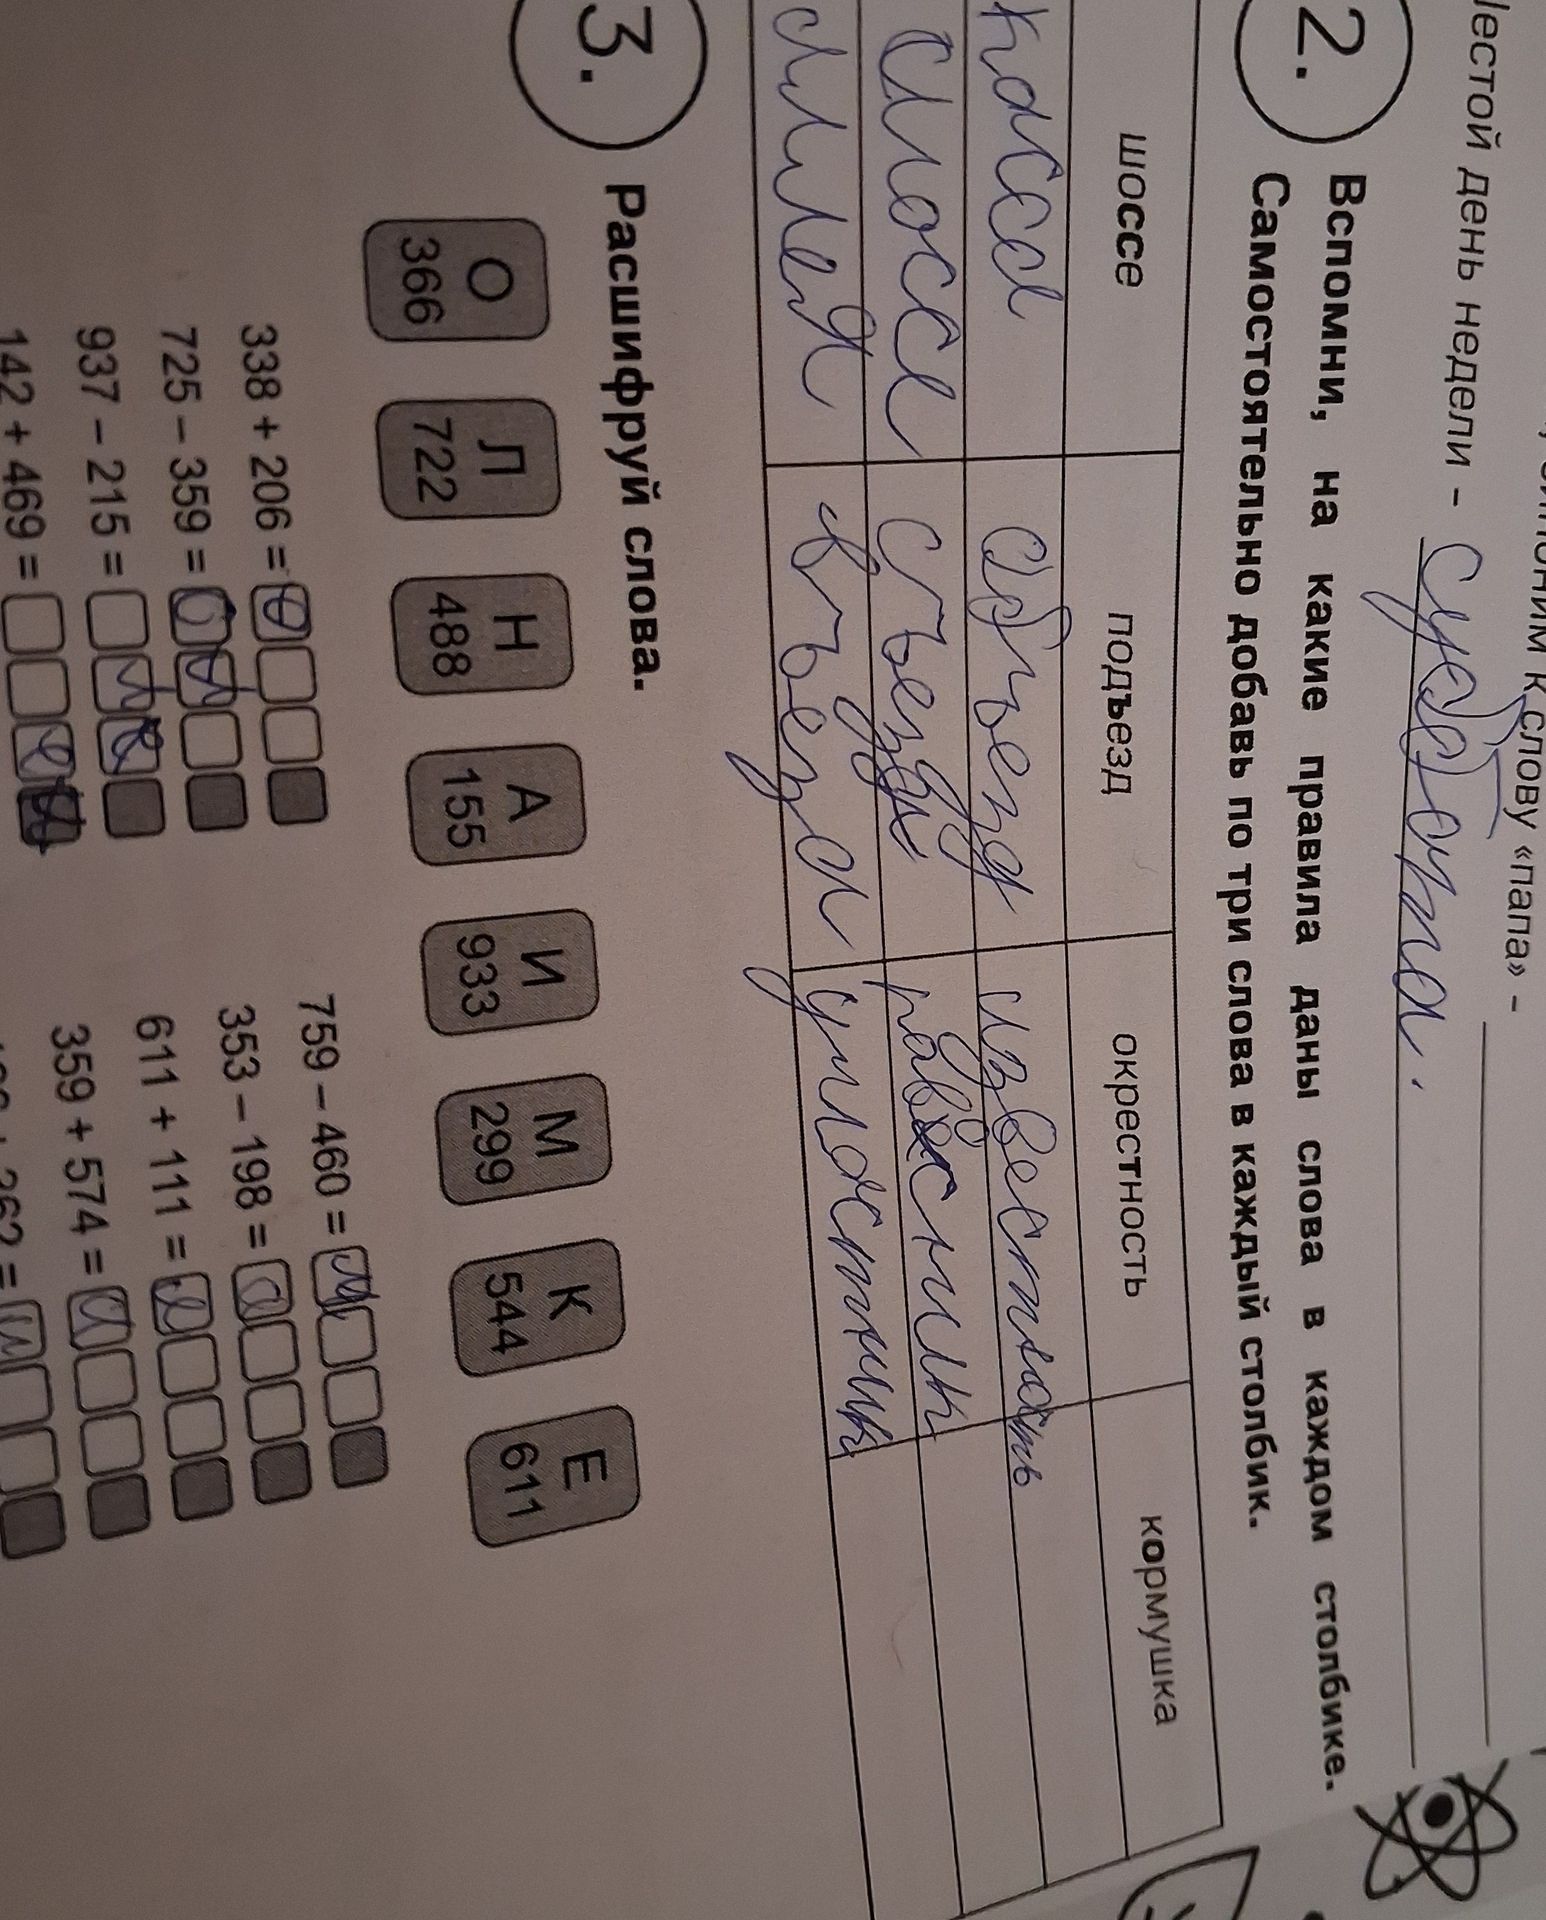 к слову «папа» -
день недели - суббота.
2.
Вспомни, на какие правила даны слова в каждом столбике.
Самостоятельно добавь по три слова в каждый столбик.
шоссе подъезд окрестность кормушка
касса объезд известность
съезд
аллея въезд участник
3.
Расшифруй слова.
О Л Н А И М К Е
366 722 488 155 933 299 544 611
338 + 206 = 759 – 460 =
725 – 359 = 353 – 198 =
937 – 215 = 611 + 111 =
142 + 469 = 359 + 574 =